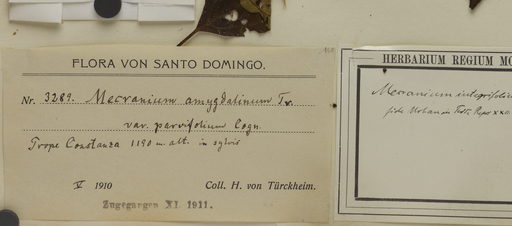 FLORA VON SANTO DOMINGO.
Nr. 3289. Mecranium amygdalinum Tr.
var. parvifolium Cogn.
Prope Constanza 1190 m. alt. in sylvis
V 1910 Coll. H. von Türckheim.
Zugegangen XI. 1911.
HERBARIUM REGIUM MO
Mecranium integrifoliu
fide Urban in Fedd. Rep. XXII